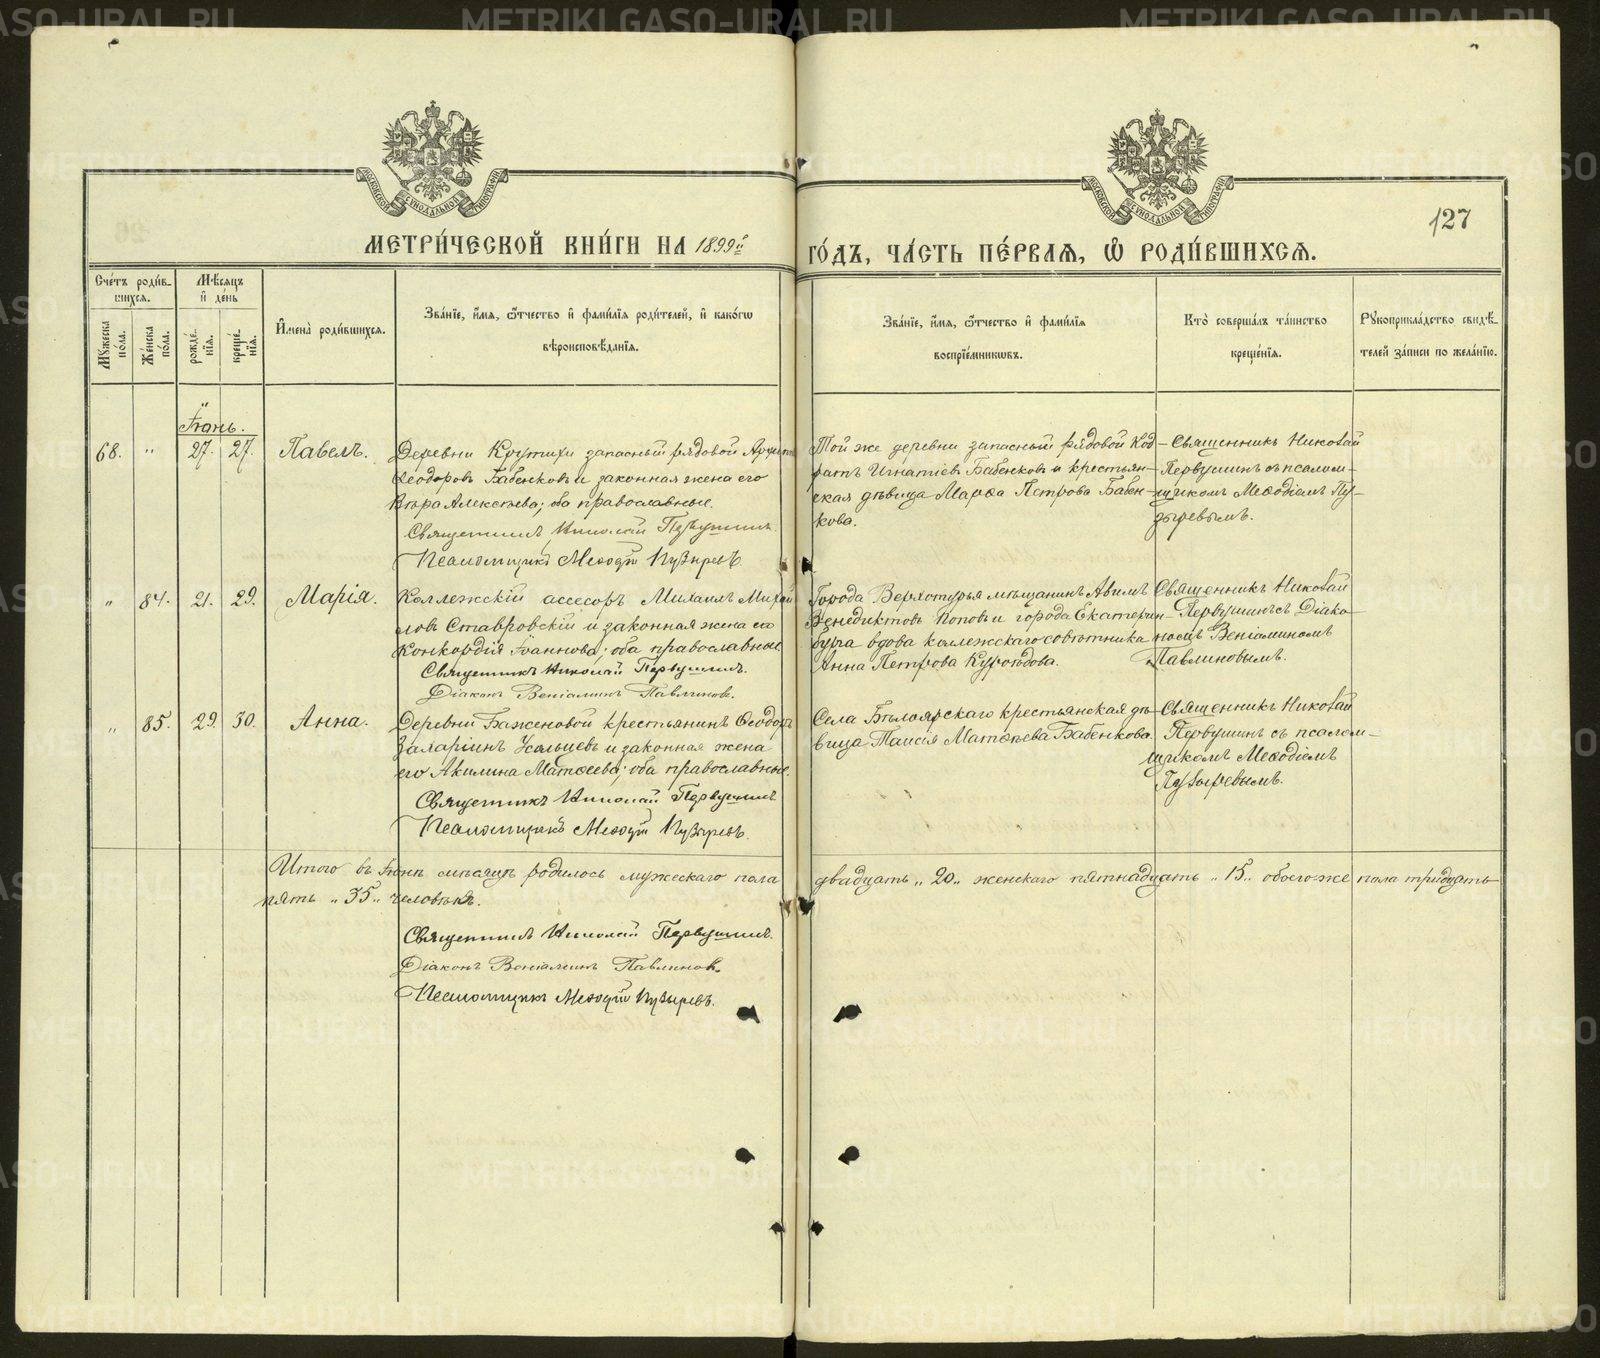 127
МЕТРИ́ЧЕСКОЙ КНИ́ГИ НА 1899й ГО́ДЪ, ЧА́СТЬ ПЕ́РВАЯ, Ѡ РОДИ́ВШИХСЯ.
Сче́тъ роди́в-
шихся.
Му́жеска по́ла.
Же́нска по́ла.
Мѣ́сяцъ
и де́нь
рожде́-
нія.
креще́-
нія.
Имена̀ роди́вшихся.
Зва́ніе, имя, ѻтчество и фами́лія роди́телей, и како́гѡ
вѣроисповѣ́данія.
Зва́ніе, имя, ѻтчество и фами́лія
воспріе́мникѡвъ.
Кто̀ соверша́лъ та́инство
креще́нія.
Рукоприкла́дство свидѣ́-
телей за́писи по жела́нію.
Іюнь.
68. " 27. 27. Павелъ.
Деревни Крутихи запасный рядовой
Ѳеодоровъ Бабенковъ и законная жена его
Вѣра Алексѣева; оба православные.
Священникъ Николай Первушинъ.
Псаломщикъ Меѳодій Пузыревъ.
Той же деревни запасный рядовой Код-
ратъ Игнатіевъ Бабенковъ и крестьян-
ская дѣвица Марѳа Петрова Бабен-
кова.
Священникъ Николай
Первушинъ съ псалом-
щикомъ Меѳодіемъ Пу-
зыревымъ.
" 84. 21. 29. Марія.
Коллежскій ассесоръ Михаилъ Михай
ловъ Ставровскій и законная жена его
Конкордія Іоаннова; оба православные
Священникъ Николай Первушинъ.
Діаконъ Веніаминъ Павлиновъ.
Города Верхотурья мѣщанинъ
Венедиктовъ Поповъ и города Екатерин-
бурга вдова коллежскаго совѣтника
Анна Петрова Куроѣдова.
Священникъ Николай
Первушинъ съ Діако-
номъ Веніаминомъ
Павлиновымъ.
" 85. 29. 30. Анна.
Деревни Баженовой крестьянинъ Ѳеодоръ
Усольцевъ и законная жена
его Акилина Матѳеева; оба православные.
Священникъ Николай Первушинъ
Псаломщикъ Меѳодій Пузыревъ.
Села Бѣлоярскаго крестьянская дѣ-
вица Таисія Матѳѣева Бабенкова.
Священникъ Николай
Первушинъ съ псалом-
щикомъ Меѳодіемъ
Пузыревымъ.
Итого въ Іюнѣ мѣсяцѣ родилось мужескаго пола двадцать "20" женскаго пятнадцать "15" обоего же пола тридцать
пять "35" человѣкъ.
Священникъ Николай Первушинъ.
Діаконъ Веніаминъ Павлиновъ.
Псаломщикъ Меѳодій Пузыревъ.
METRIKI.GASO-URAL.RU